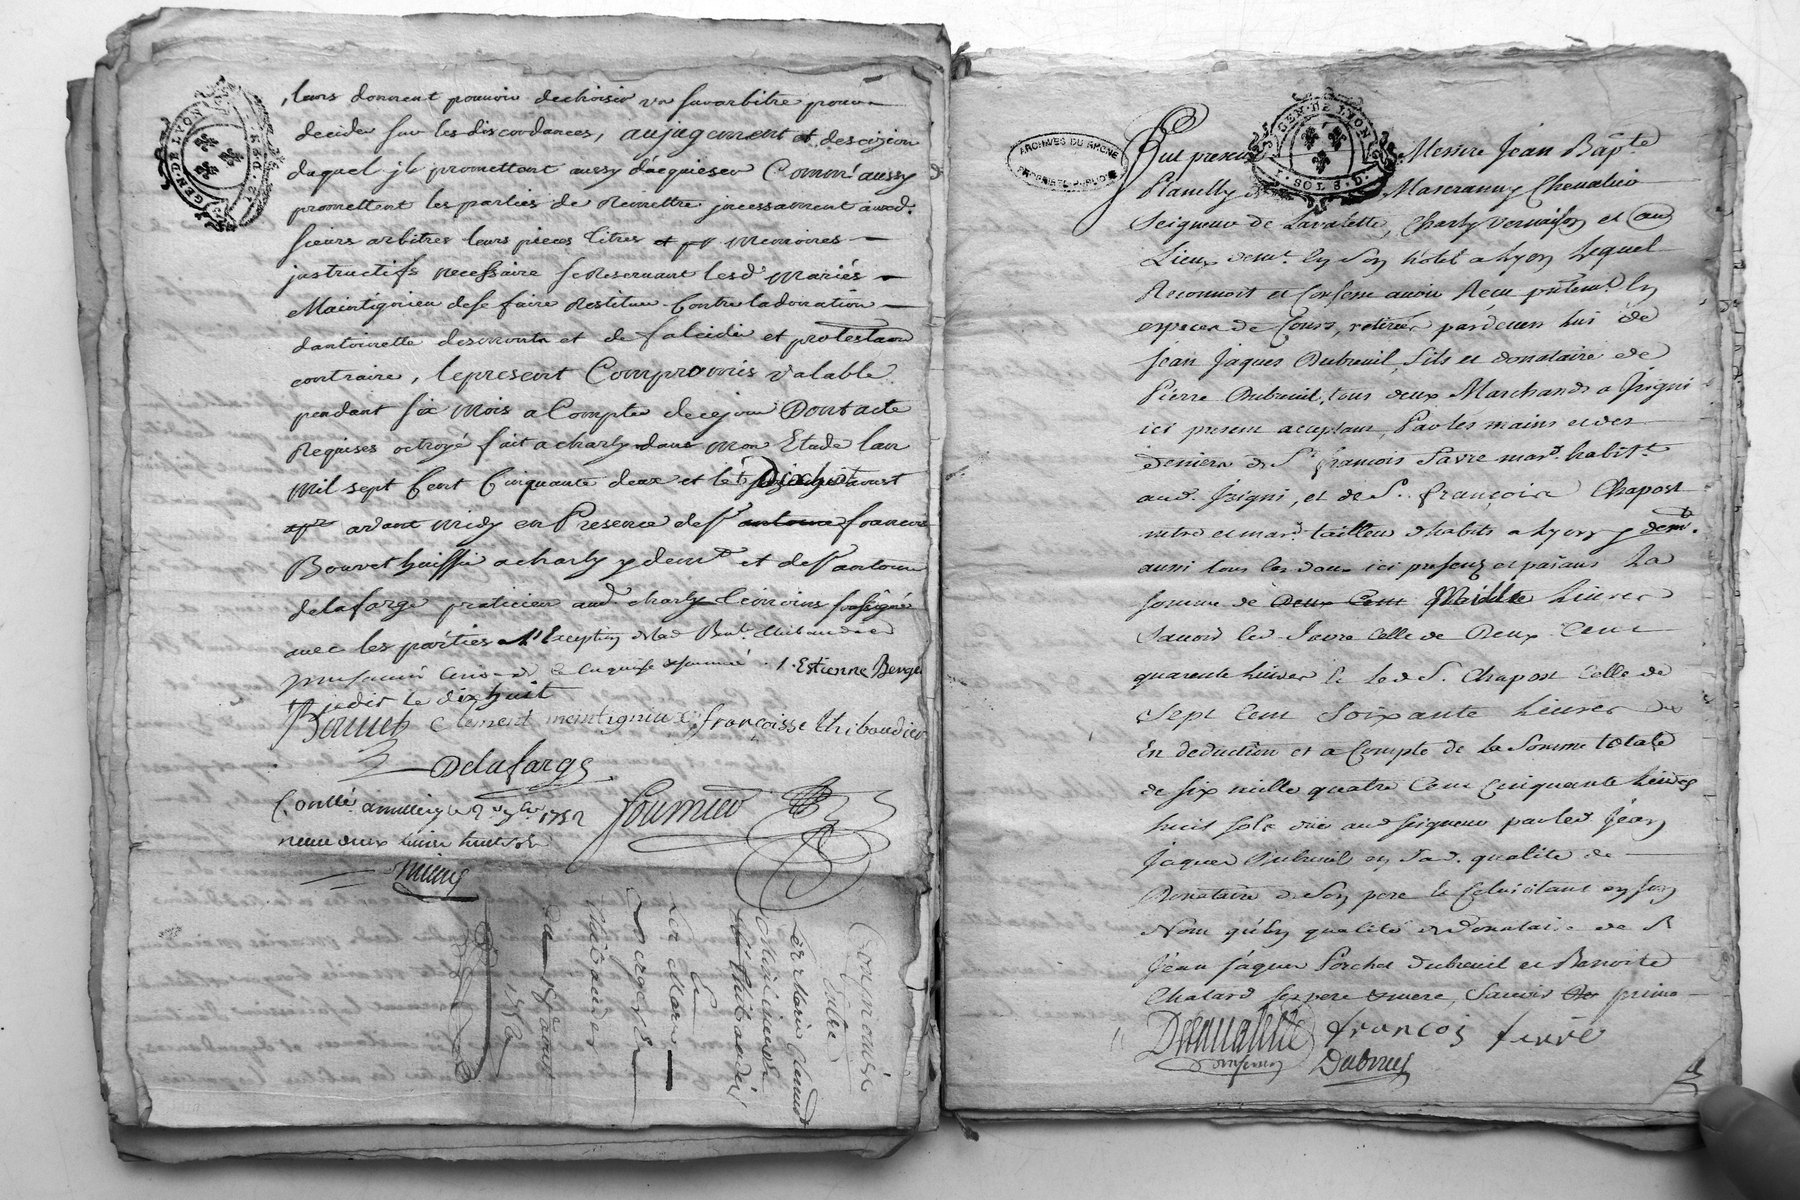 leurs donnent pouvoir de choisir un surarbitre pour
decider sur les discordances, au jugement et descizion
duquel jls promettent aussy d'acquiescer Comm' aussy
promettent les parties de Remettre jncessament auxd.
sieurs arbitres leurs pieces titres et memoires
jnstructifs necessaire se Reservant lesd' mariés
Maintignieu de se faire Restituer Contre la donation
dantoinette desmonts et de falcidie et protestaon
contraire, le present Compromis valable
pendant six mois a Compter de ce jour Dont acte
Requises octroyé fait a charly dans mon Etude lan
mil sept Cent Cinquante deux et le Dixhuit aoust
avant midy en Presence de sr antoine francois
Bouvet huissier a charly y demt et de sr antoine
delafarge praticien aud charly temoins soussignés
avec les parties a l'Exception
enquis et sommé . 1. Estienne Berger
jeudit le dix huit
Bouvet clement meintigniux françoisse thibaudier
Delafarge
Conllé a millery le 2e 7bre 1752 fournier
neuf livre huit sols
Compromis
Entre
Sr Marie Claude
Mintignieux
la Thibaudier
Et
La Mari
Bergere
Thibaudier
Du 18e aoust
1752
GEN. DE LYON
ARCHIVES DU RHONE
PROPRIÉTÉ PUBLIQUE
GEN. DE LYON
1. SOL 8. D.
Fut present Messire Jean Bapte
Planelly de Mascranny Chevalier
Seigneur de Lavalette, Charly Vernaison et au
Lieux demt En Son hôtel a Lyon Lequel
Reconnoit et Confesse avoir Receu presentemt En
especes de Cours, retirées pardevers lui de
Jean Jaques Dubreuil, fils et donataire de
Pierre Dubreuil, tous deux Marchands a Jrigni
ici present acceptant, Par les mains et des
deniers de Sr francois Favre mard habitt
aud. Jrigni, et de Sr. françois Chapost
mtre et mard tailleur d'habits a Lyon y demt.
aussi tous les deux ici presens et païans La
somme de Deux Cent Mille Livres
Savoir led Favre Celle de Deux Cent
quarente Livres Et led S. Chapost Celle de
Sept Cent Soixante Livres
En deduction et a Compte de la Somme totale
de six mille quatre Cent Cinquante Livres
huit sols due aud seigneur par led Jean
Jaques Dubreuil en sad. qualité de
Donataire de son pere
Nom qu'en qualité de Donataire de S
Jean Jaques Porchet Dubreuil et Benoite
Chatard ses pere & mere, Savoir primo
Delavalette francois favre
Dubreuil